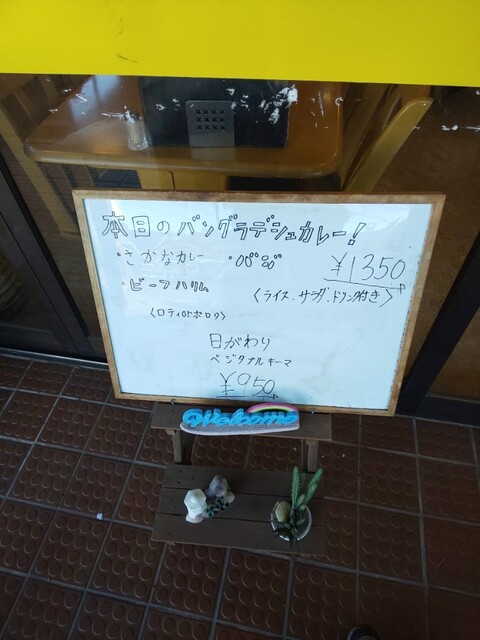 本日のバングラデシュカレー!
・さかなカレー ・バジ
¥1350
・ビーフハリム
〈ライス、サラダ、ドリンク付き〉
〈ロティorポロタ〉
日がわり
ベジタブルキーマ
¥950
Welcome